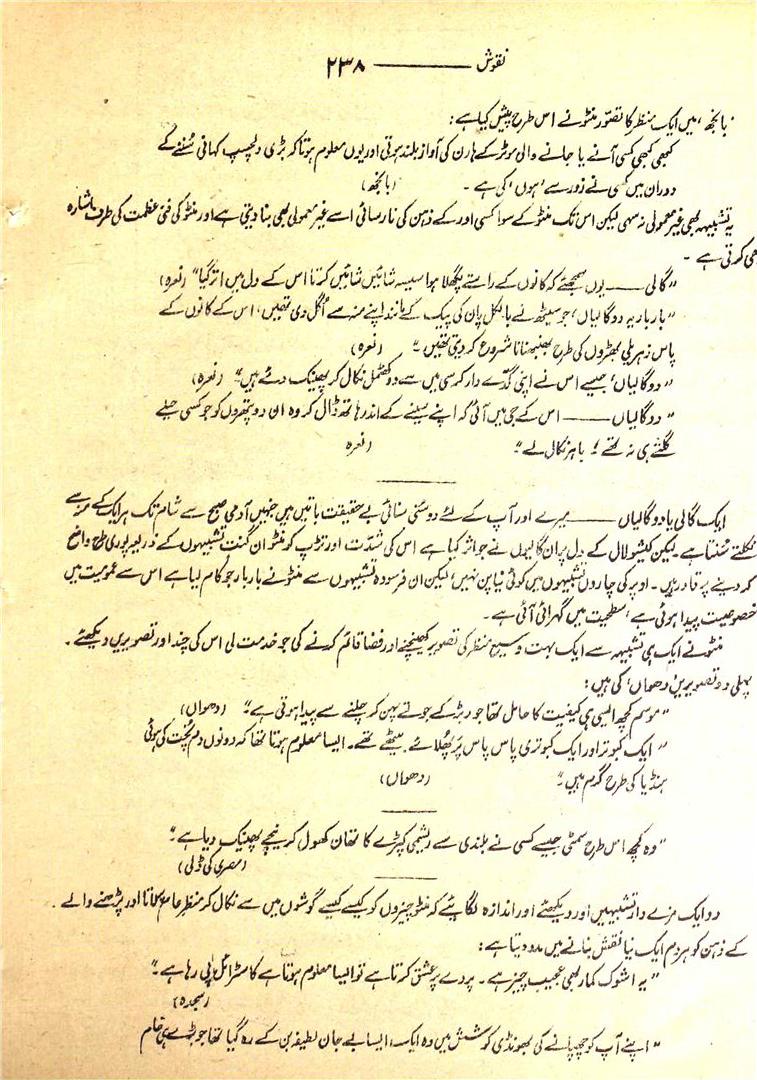 نقوش ——— ۲۳۸
'بانجھ' میں ایک منظر کا تصور منٹو نے اس طرح پیش کیا ہے:
کبھی کبھی کسی آنے یا جانے والی موٹر کے ہارن کی آواز بلند ہوتی اور یوں معلوم ہوتا کہ بڑی دلچسپ کہانی سُننے کے
دوران میں کسی نے زور سے 'ہوں' کی ہے۔ (بانجھ)
یہ تشبیہہ بھی غیر معمولی نہ سہی لیکن اس تک منٹو کے سوا کسی اور کے ذہن کی نارسائی اسے غیر معمولی بھی بنا دیتی ہے اور منٹو کی فنی عظمت کی طرف اشارہ
بھی کرتی ہے۔
"گالی —— یوں سمجھئے کہ کانوں کے راستے پگھلا ہوا سیسہ شائیں شائیں کرتا اس کے دل میں اتر گیا" (نعرہ)
"بار بار یہ دو گالیاں، جو سیٹھ نے بالکل پان کی پیک کے مانند اپنے منہ سے اُگل دی تھیں، اس کے کانوں کے
پاس زہریلی بھڑوں کی طرح بھنبھنانا شروع کر دیتی تھیں۔" (نعرہ)
"دو گالیاں، جیسے اس نے اپنی گدّے دار کرسی میں سے دو کھٹمل نکال کر پھینک دئے ہیں" (نعرہ)
"دو گالیاں —— اس کے جی میں آئی کہ اپنے سینے کے اندر ہاتھ ڈال کر وہ ان دو پتھروں کو جو کسی حیلے
گلتے ہی نہ تھے! باہر نکال لے" (نعرہ
ایک گالی یا دو گالیاں —— میرے اور آپ کے لئے دو سنی سنائی بے حقیقت باتیں ہیں جنہیں آدمی صبح سے شام تک ہر ایک کے منہ سے
نکلتے سُنتا ہے لیکن کیشو لال کے دل پر ان گالیوں نے جو اثر کیا ہے اس کی شدّت اور تڑپ کو منٹو ان گنت تشبیہوں کے ذریعہ پوری طرح واضح
کر دینے پر قادر ہیں۔ اوپر کی چاروں تشبیہوں میں کوئی نیا پن نہیں، لیکن ان فرسودہ تشبیہوں سے منٹو نے بار بار جو کام لیا ہے اس سے عمومیت میں
خصوصیت پیدا ہوئی ہے، سطحیت میں گہرائی آئی ہے۔
منٹو نے ایک ہی تشبیہہ سے ایک بہت وسیع منظر کی تصویر کھینچنے اور فضا قائم کرنے کی جو خدمت لی اس کی چند اور تصویریں دیکھئے۔
پہلی دو تصویریں 'دھواں' کی ہیں:
"موسم کچھ ایسی ہی کیفیت کا حامل تھا جو ربڑ کے جوتے پہن کر چلنے سے پیدا ہوتی ہے۔" (دھواں)
"ایک کبوتر اور ایک کبوتری پاس پاس پر پھُلائے بیٹھے تھے۔ ایسا معلوم ہوتا تھا کہ دونوں دم پُخت کی ہوئی
ہنڈیا کی طرح گرم ہیں۔" (دھواں)
"وہ کچھ اس طرح سمٹی جیسے کسی نے بلندی سے ریشمی کپڑے کا تھان کھول کر نیچے پھینک دیا ہے۔"
(مصری کی ڈلی)
دو ایک مزے دار تشبیہیں اور دیکھئے اور اندازہ لگایئے کہ منٹو چیزوں کو کیسے کیسے گوشوں میں سے نکال کر منظرِ عام پر لاتا اور پڑھنے والے
کے ذہن کو ہر دم ایک نیا نقش بنانے میں مدد دیتا ہے:
"یہ اشوک کمار بھی عجیب چیز ہے۔ پردے پر عشق کرتا ہے تو ایسا معلوم ہوتا ہے کاسٹرائل پی رہا ہے۔"
(سجدہ)
"اپنے آپ کو چھپانے کی بھونڈی کوشش میں وہ ایک ایسا بے جان لطیفہ بن کے رہ گیا تھا جو بڑے ہی خام